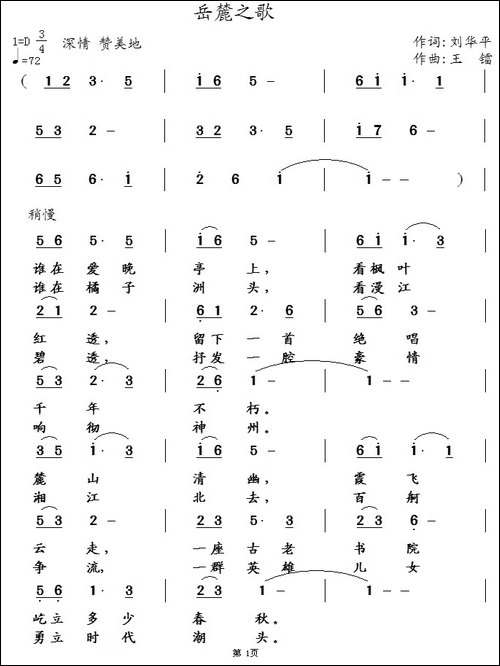 岳麓之歌
1=D 3/4 深情 赞美地
♩=72
作词:刘华平
作曲:王 镭
( 1 2 3· 5 | i 6 5 - | 6 i i· i |
5 3 2 - | 3 2 3· 5 | i 7 6 - |
6 5 6· i | 2 6 i | i - - )
稍慢
5 6 5· 5 | i 6 5 - | 6 i i· 3 |
谁在 爱晚 亭 上, 看枫叶
谁在 橘子 洲 头, 看漫江
2 1 2 - | 6 1 2· 6 | 5 6 3 - |
红 透, 留下一首 绝 唱
碧 透, 抒发一腔 豪 情
5 3 2· 3 | 2 6 1 - | 1 - - |
千 年 不 朽。
响 彻 神 州。
3 5 i· 3 | i 5 6 - | 6 i i· i |
麓 山 清 幽, 霞 飞
湘 江 北 去, 百 舸
5 3 2 - | 2 3 5· 3 | 2 3 6 - |
云 走, 一座古老 书 院
争 流, 一群英雄 儿 女
5 6 1· 3 | 2 3 1 - | 1 - - |
屹立多少 春 秋。
勇立时代 潮 头。
第 1页